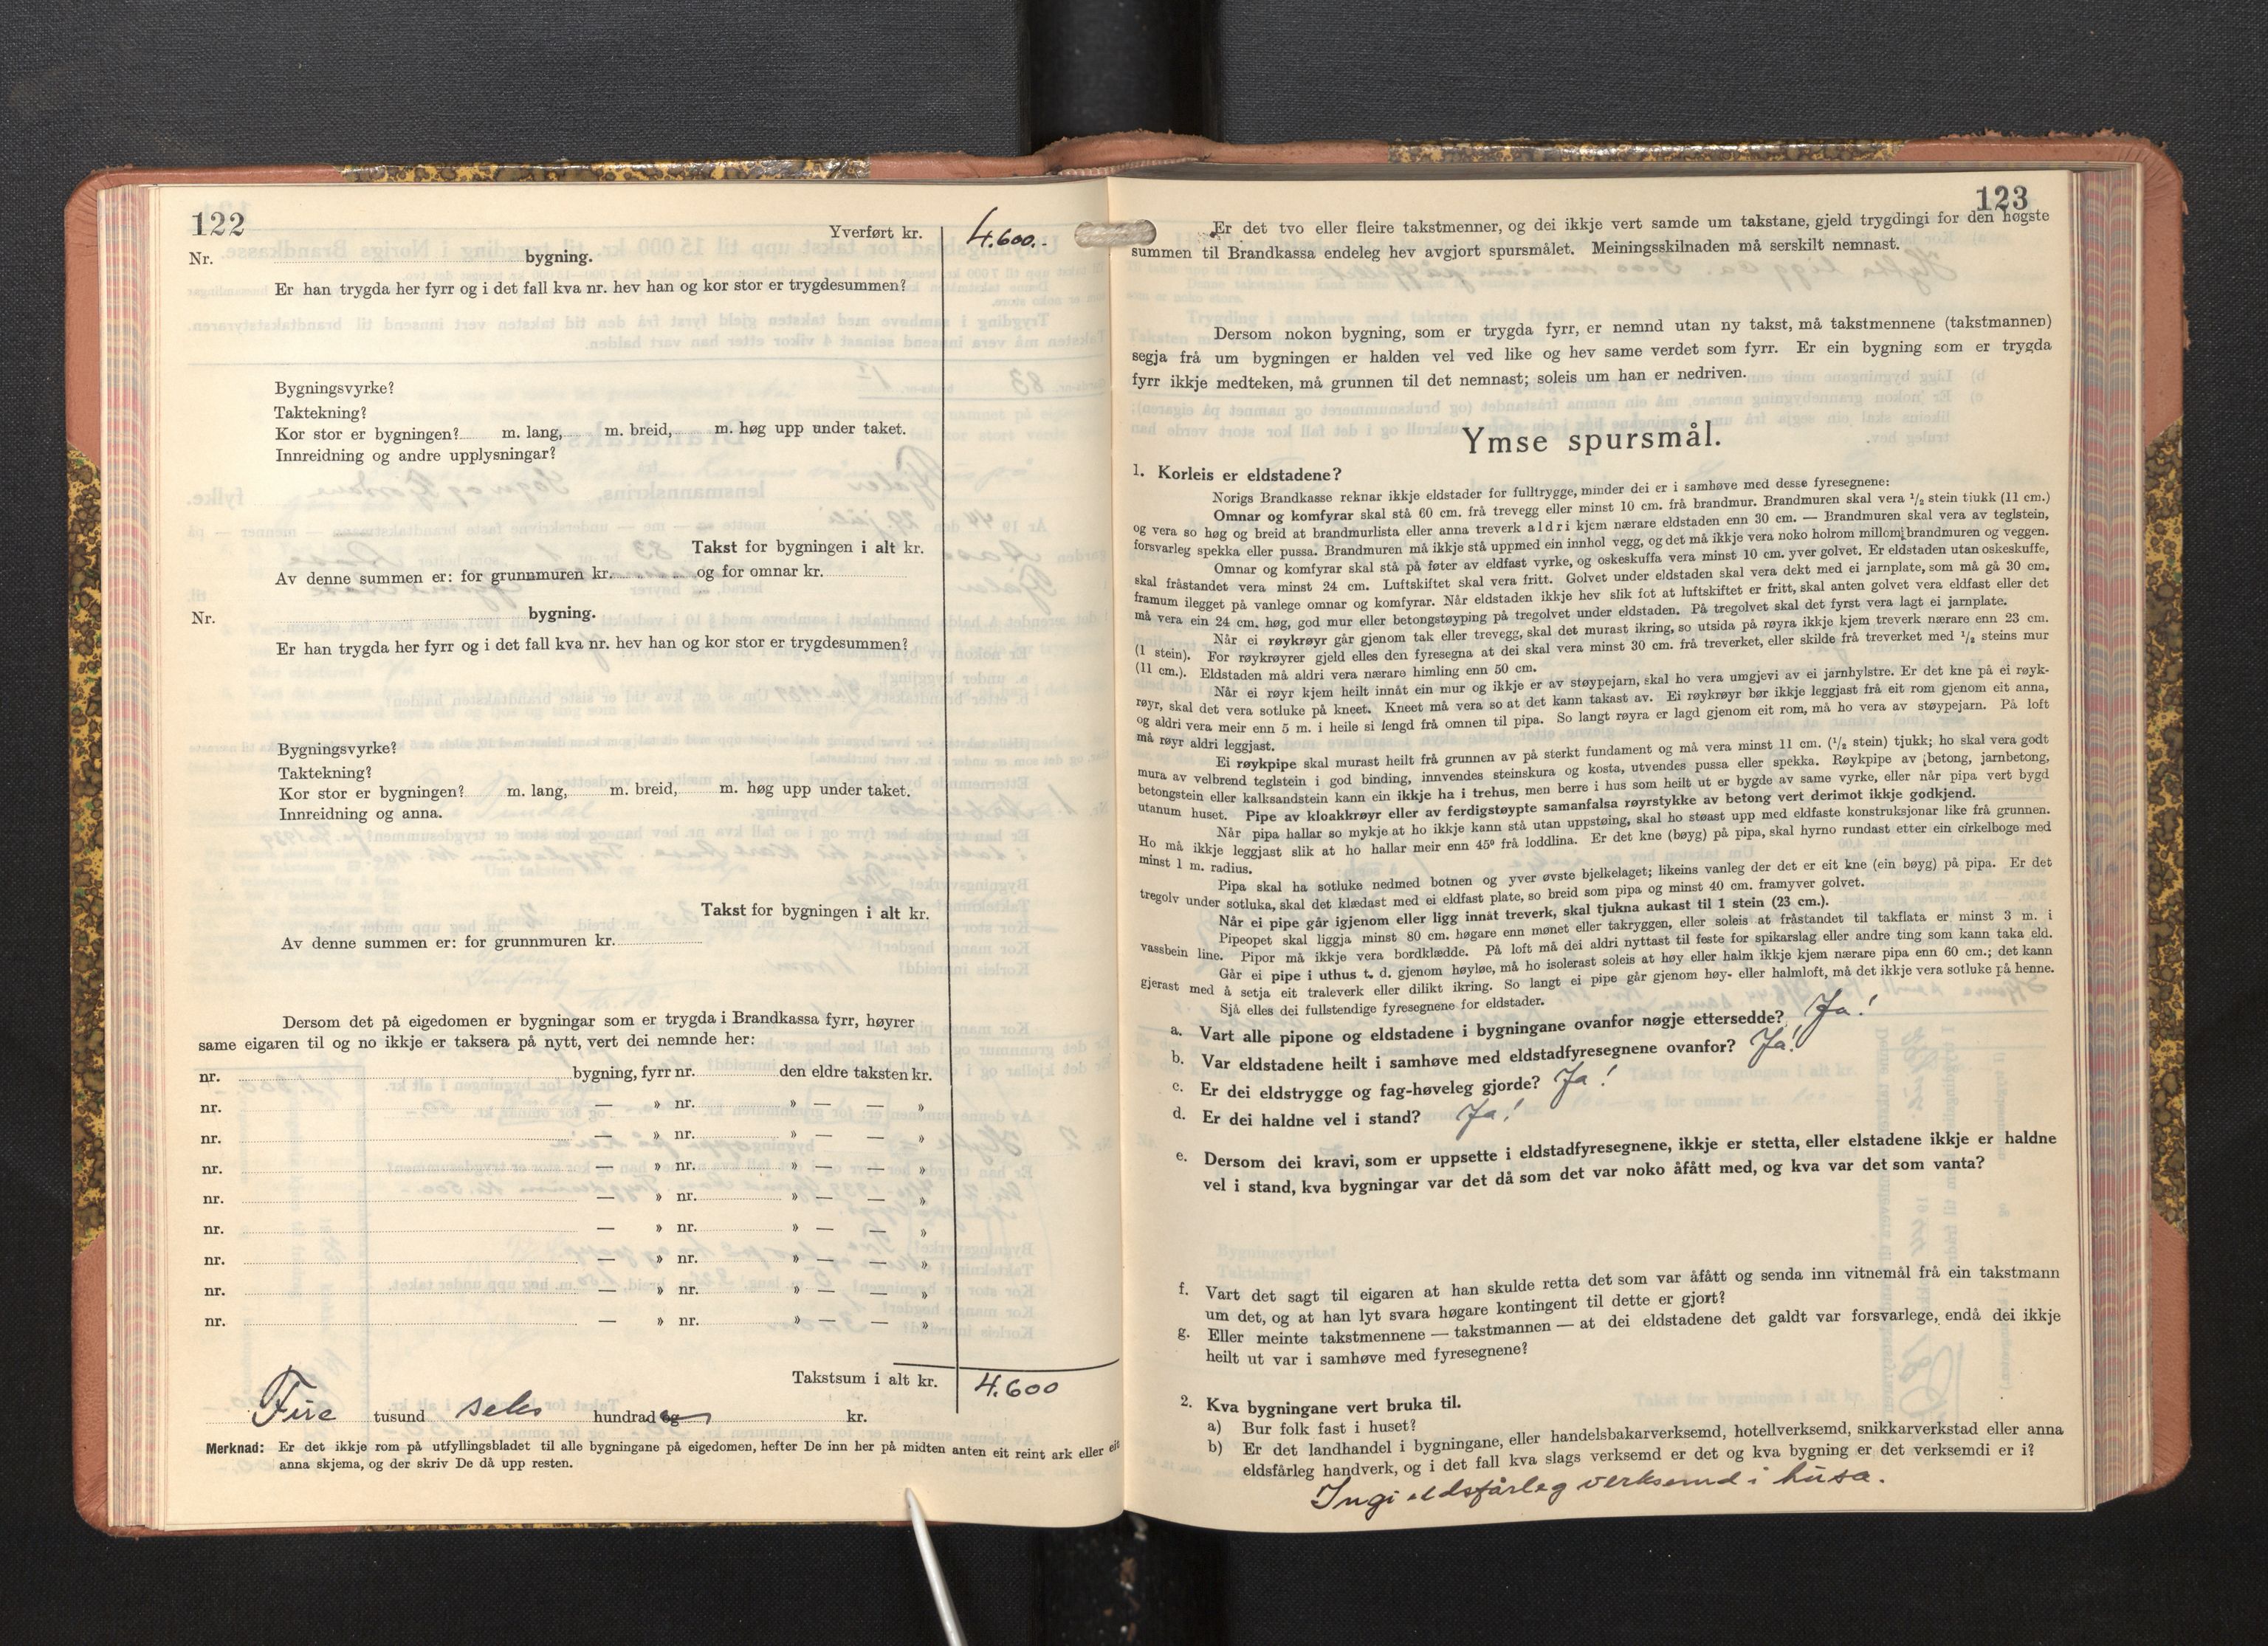 122
Yverført kr. 4.600.-
Nr. bygning.
Er han trygda her fyrr og i det fall kva nr. hev han og kor stor er trygdesummen?
Bygningsvyrke?
Taktekning?
Kor stor er bygningen? m. lang, m. breid, m. høg upp under taket.
Innreidning og andre upplysningar?
Takst for bygningen i alt kr.
Av denne summen er: for grunnmuren kr. og for omnar kr.
Nr. bygning.
Er han trygda her fyrr og i det fall kva nr. hev han og kor stor er trygdesummen?
Bygningsvyrke?
Taktekning?
Kor stor er bygningen? m. lang, m. breid, m. høg upp under taket.
Innreidning og anna.
Takst for bygningen i alt kr.
Av denne summen er: for grunnmuren kr.
Dersom det på eigedomen er bygningar som er trygda i Brandkassa fyrr, høyrer
same eigaren til og no ikkje er taksera på nytt, vert dei nemnde her:
nr. bygning, fyrr nr. den eldre taksten kr.
nr. — » nr. » — — »
nr. — » nr. » — — »
nr. — » nr. » — — »
nr. — » nr. » — — »
nr. — » nr. » — — »
nr. — » nr. » — — »
nr. — » nr. » — — »
nr. — » nr. » — — »
Takstsum i alt kr. 4.600
Fire tusund seks hundrad og kr.
Merknad: Er det ikkje rom på utfyllingsbladet til alle bygningane på eigedomen, hefter De inn her på midten anten eit reint ark eller eit
anna skjema, og der skriv De då upp resten.
123
Er det tvo eller fleire takstmenner, og dei ikkje vert samde um takstane, gjeld trygdingi for den høgste
summen til Brandkassa endeleg hev avgjort spursmålet. Meiningsskilnaden må serskilt nemnast.
Dersom nokon bygning, som er trygda fyrr, er nemnd utan ny takst, må takstmennene (takstmannen)
segja frå um bygningen er halden vel ved like og hev same verdet som fyrr. Er ein bygning som er trygda
fyrr ikkje medteken, må grunnen til det nemnast; soleis um han er nedriven.
Ymse spursmål.
1. Korleis er eldstadene?
Norigs Brandkasse reknar ikkje eldstader for fulltrygge, minder dei er i samhøve med desse fyresegnene:
Omnar og komfyrar skal stå 60 cm. frå trevegg eller minst 10 cm. frå brandmur. Brandmuren skal vera 1/2 stein tjukk (11 cm.)
og vera so høg og breid at brandmurlista eller anna treverk aldri kjem nærare eldstaden enn 30 cm. — Brandmuren skal vera av teglstein,
forsvarleg spekka eller pussa. Brandmuren må ikkje stå uppmed ein innhol vegg, og det må ikkje vera noko holrom millom brandmuren og veggen.
Omnar og komfyrar skal stå på føter av eldfast vyrke, og oskeskuffa vera minst 10 cm. yver golvet. Er eldstaden utan oskeskuffe,
skal fråstandet vera minst 24 cm. Luftskiftet skal vera fritt. Golvet under eldstaden skal vera dekt med ei jarnplate, som må gå 30 cm.
framum ilegget på vanlege omnar og komfyrar. Når eldstaden ikkje hev slik fot at luftskiftet er fritt, skal anten golvet vera eldfast eller det
må vera ein 24 cm. høg, god mur eller betongstøyping på tregolvet under eldstaden. På tregolvet skal det fyrst vera lagt ei jarnplate.
Når ei røykrøyr går gjenom tak eller trevegg, skal det murast ikring, so utsida på røyra ikkje kjem treverk nærare enn 23 cm.
(1 stein). For røykrøyrer gjeld elles den fyresegna at dei skal vera minst 30 cm. frå treverket, eller skilde frå treverket med 1/2 steins mur
(11 cm.). Eldstaden må aldri vera nærare himling enn 50 cm.
Når ei røyr kjem heilt innåt ein mur og ikkje er av støypejarn, skal ho vera umgjevi av ei jarnhylstre. Er det kne på ei røyk-
røyr, skal det vera sotluke på kneet. Kneet må vera so at det kann takast av. Ei røykrøyr bør ikkje leggjast frå eit rom gjenom eit anna,
og aldri vera meir enn 5 m. i heile si lengd frå omnen til pipa. So langt røyra er lagd gjenom eit rom, må ho vera av støypejarn. På loft
må røyr aldri leggjast.
Ei røykpipe skal murast heilt frå grunnen av på sterkt fundament og må vera minst 11 cm. (1/2 stein) tjukk; ho skal vera godt
mura av velbrend teglstein i god binding, innvendes steinskura og kosta, utvendes pussa eller spekka. Røykpipe av betong, jarnbetong,
betongstein eller kalksandstein kann ein ikkje ha i trehus, men berre i hus som heilt ut er bygde av same vyrke, eller når pipa vert bygd
utanum huset. Pipe av kloakkrøyr eller av ferdigstøypte samanfalsa røyrstykke av betong vert derimot ikkje godkjend.
Når pipa hallar so mykje at ho ikkje kann stå utan uppstøing, skal ho støast upp med eldfaste konstruksjonar like frå grunnen.
Ho må ikkje leggjast slik at ho hallar meir enn 45° frå loddlina. Er det kne (bøyg) på pipa, skal hyrno rundast etter ein cirkelboge med
minst 1 m. radius.
Pipa skal ha sotluke nedmed botnen og yver øvste bjelkelaget; likeins vanleg der det er eit kne (ein bøyg) på pipa. Er det
tregolv under sotluka, skal det klædast med ei eldfast plate, so breid som pipa og minst 40 cm. framyver golvet.
Når ei pipe går igjenom eller ligg innåt treverk, skal tjukna aukast til 1 stein (23 cm.).
Pipeopet skal liggja minst 80 cm. høgare enn mønet eller takryggen, eller soleis at fråstandet til takflata er minst 3 m. i
vassbein line. Pipor må ikkje vera bordklædde. På loft må dei aldri nyttast til feste for spikarslag eller andre ting som kann taka eld.
Går ei pipe i uthus t. d. gjenom høyløe, må ho isolerast soleis at høy eller halm ikkje kjem nærare pipa enn 60 cm.; det kann
gjerast med å setja eit traleverk eller dilikt ikring. So langt ei pipe går gjenom høy- eller halmloft, må det ikkje vera sotluke på henne.
Sjå elles dei fullstendige fyresegnene for eldstader.
a. Vart alle pipone og eldstadene i bygningane ovanfor nøgje ettersedde? Ja!
b. Var eldstadene heilt i samhøve med eldstadfyresegnene ovanfor? Ja!
c. Er dei eldstrygge og fag-høveleg gjorde? Ja!
d. Er dei haldne vel i stand? Ja!
e. Dersom dei kravi, som er uppsette i eldstadfyresegnene, ikkje er stetta, eller elstadene ikkje er haldne
vel i stand, kva bygningar var det då som det var noko åfått med, og kva var det som vanta?
f. Vart det sagt til eigaren at han skulde retta det som var åfått og senda inn vitnemål frå ein takstmann
um det, og at han lyt svara høgare kontingent til dette er gjort?
g. Eller meinte takstmennene — takstmannen — at dei eldstadene det galdt var forsvarlege, endå dei ikkje
heilt ut var i samhøve med fyresegnene?
2. Kva bygningane vert bruka til.
a) Bur folk fast i huset?
b) Er det landhandel i bygningane, eller handelsbakarverksemd, hotellverksemd, snikkarverkstad eller anna
eldsfårleg handverk, og i det fall kva slags verksemd er det og kva bygning er det verksemdi er i?
Ingi eldsfårleg verksemd i husa.